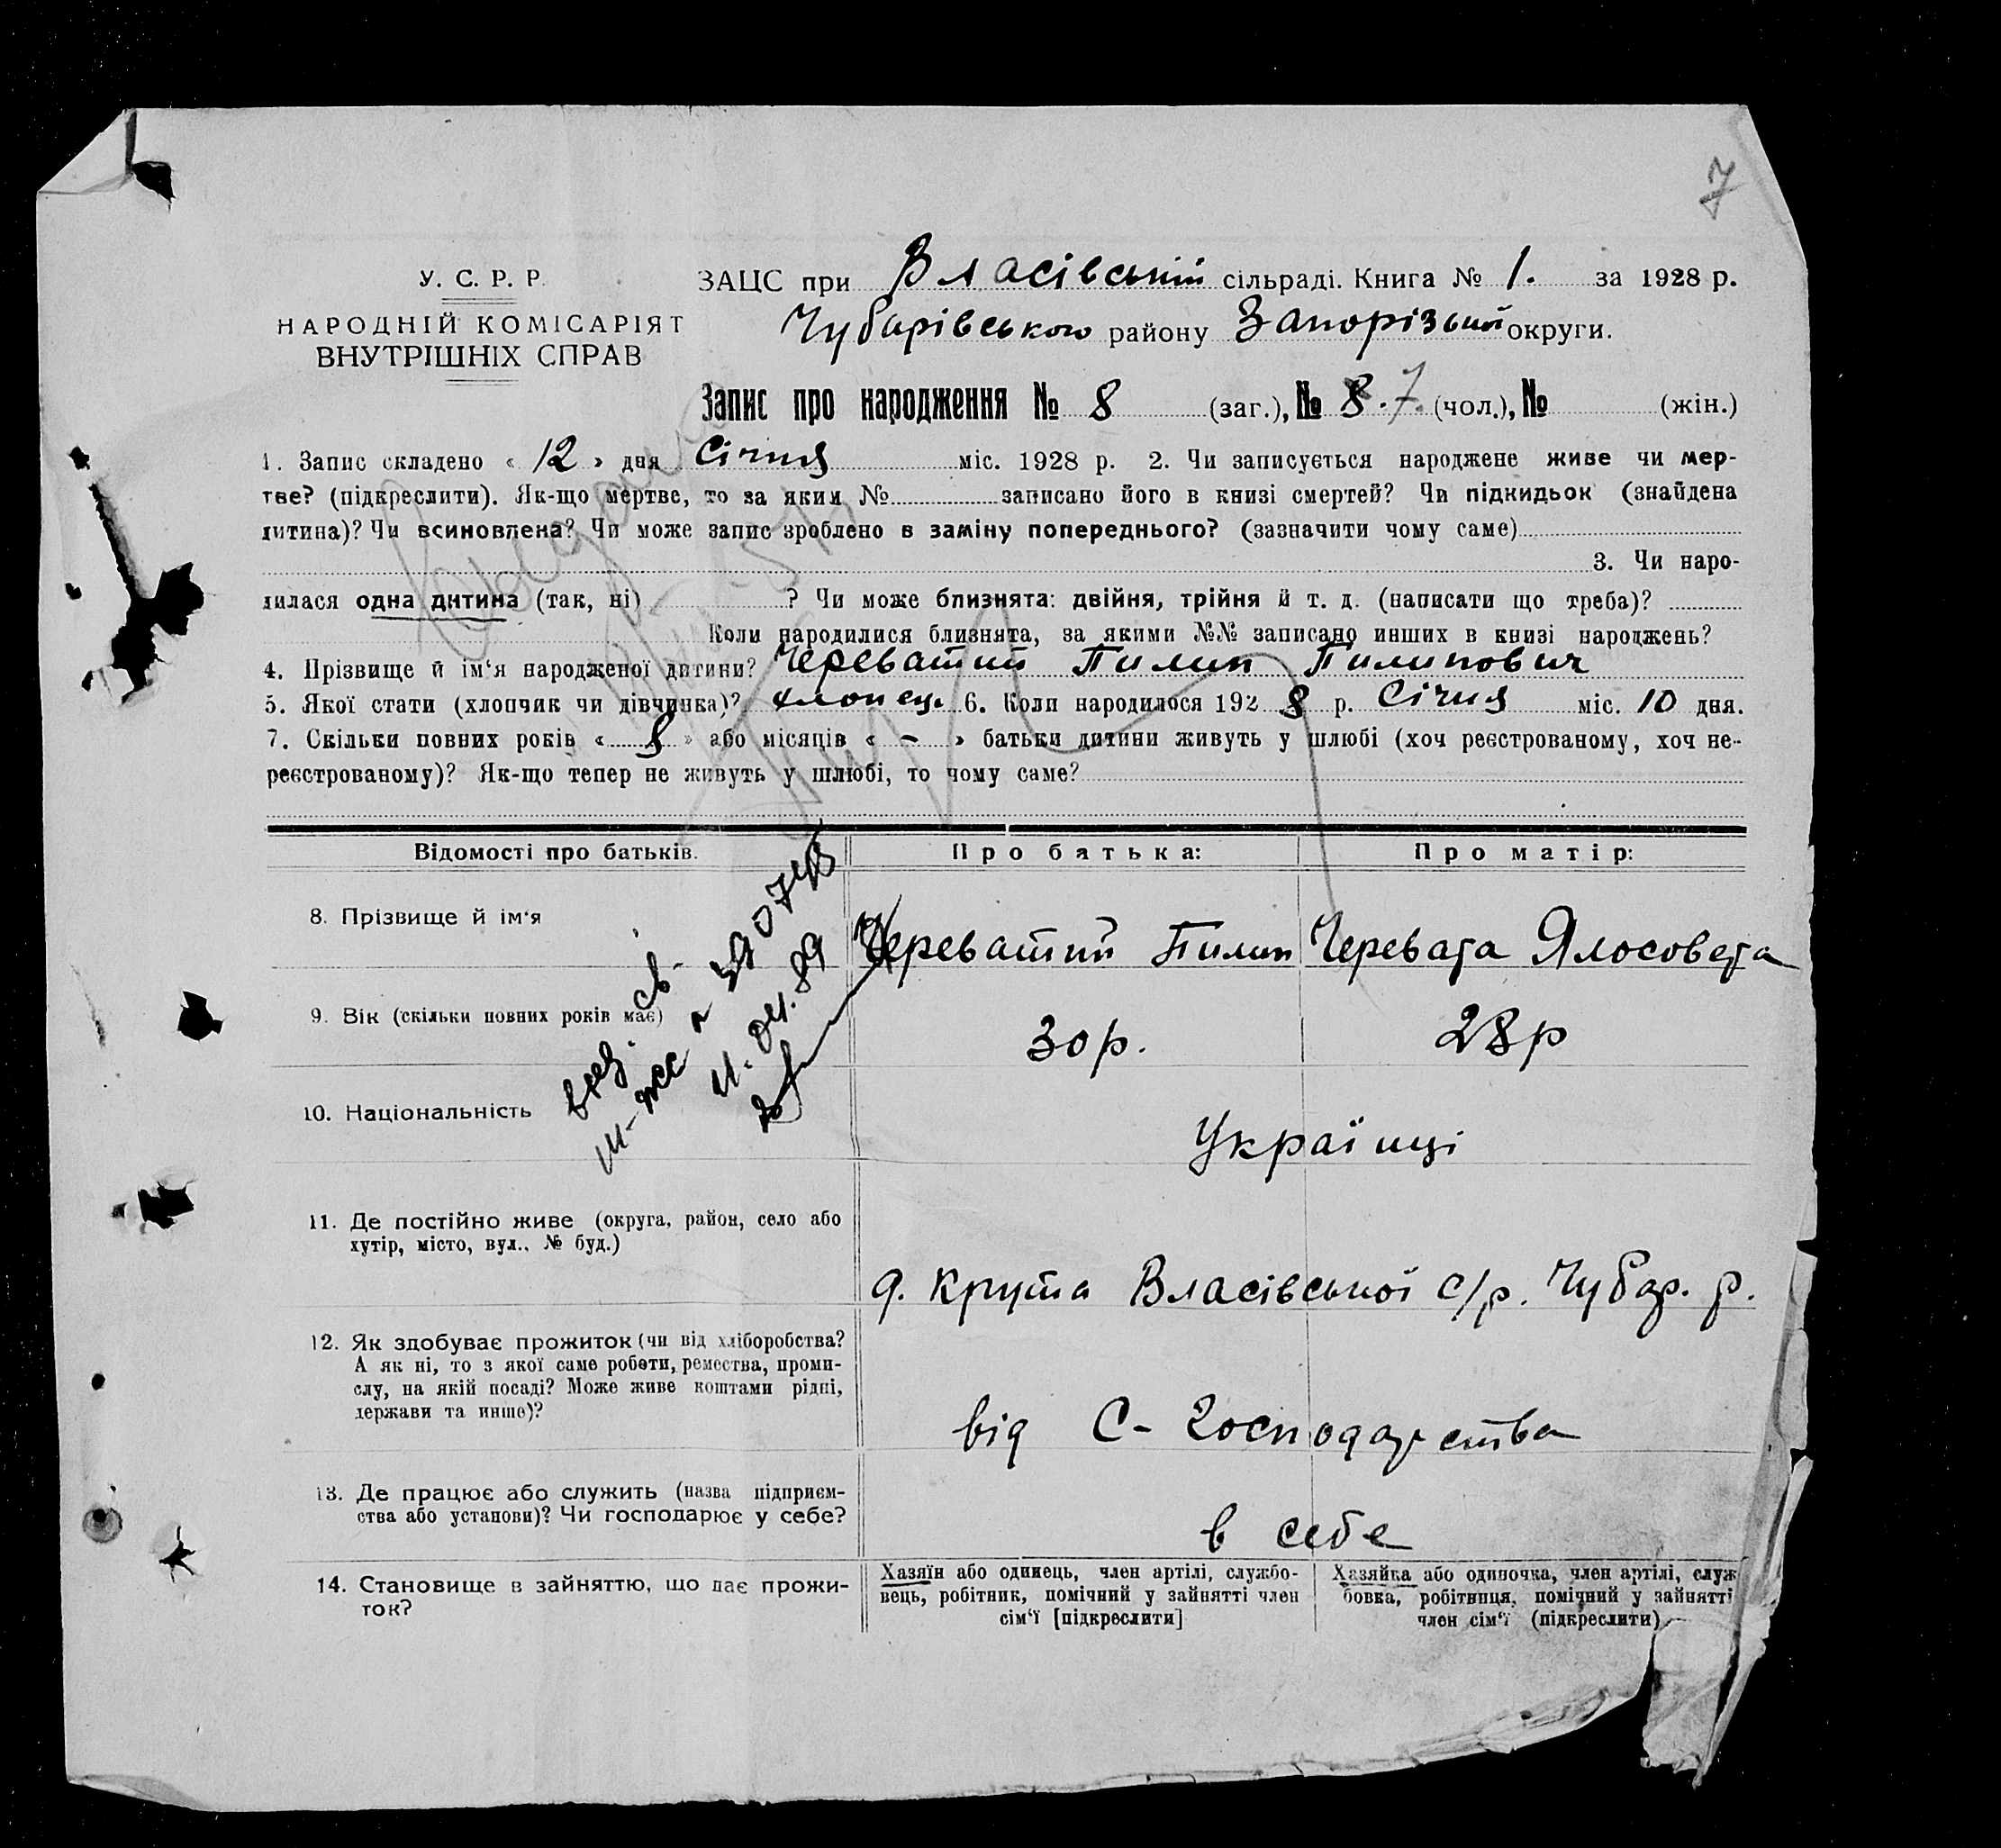 7
У. С. Р. Р.
НАРОДНІЙ КОМІСАРІЯТ
ВНУТРІШНІХ СПРАВ
ЗАЦС при Власівській сільраді. Книга № 1. за 1928 р.
Чубарівського району Запорізької округи.
Запис про народження № 8 (заг.), № 8. 7. (чол.), № (жін.)
1. Запис складено « 12 » дня Січня міс. 1928 р. 2. Чи записується народжене живе чи мер-
тве? (підкреслити). Як-що мертве, то за яким № записано його в книзі смертей? Чи підкидьок (знайдена
дитина)? Чи всиновлена? Чи може запис зроблено в заміну попереднього? (зазначити чому саме)
3. Чи наро-
дилася одна дитина (так, ні) ? Чи може близнята: двійня, трійня й т. д. (написати що треба)?
Коли народилися близнята, за якими №№ записано инших в книзі народжень?
4. Прізвище й ім‘я народженої дитини? Череватий Пилип Пилипович
5. Якої стати (хлопчик чи дівчинка)? хлопець. 6. Коли народилося 1928 р. Січня міс. 10 дня.
7. Скільки повних років « 8 » або місяців « – » батьки дитини живуть у шлюбі (хоч реєстрованому, хоч не-
реєстрованому)? Як-що тепер не живуть у шлюбі, то чому саме?
Відомості про батьків. Про батька: Про матір:
8. Прізвище й ім‘я Череватий Пилип Черевата Ялосовета
9. Вік (скільки повних років має) 30 р. 28 р
10. Національність Українці
11. Де постійно живе (округа, район, село або
хутір, місто, вул.. № буд.)
д. Крута Власівської с/р. Чубар. р.
12. Як здобуває прожиток (чи від хліборобства?
А як ні, то з якої саме роботи, ремества, проми-
слу, на якій посаді? Може живе коштами рідні,
держави та инше)?
від С-Господарства
13. Де працює або служить (назва підприєм-
ства або установи)? Чи господарює у себе?
в себе
14. Становище в зайняттю, що дає прожи-
ток?
Хазяїн або одинець, член артілі, службо-
вець, робітник, помічний у зайнятті член
сім‘ї [підкреслити]
Хазяйка або одиночка, член артілі, служ
бовка, робітниця, помічний у зайнятті
член сім‘ї (підкреслити)